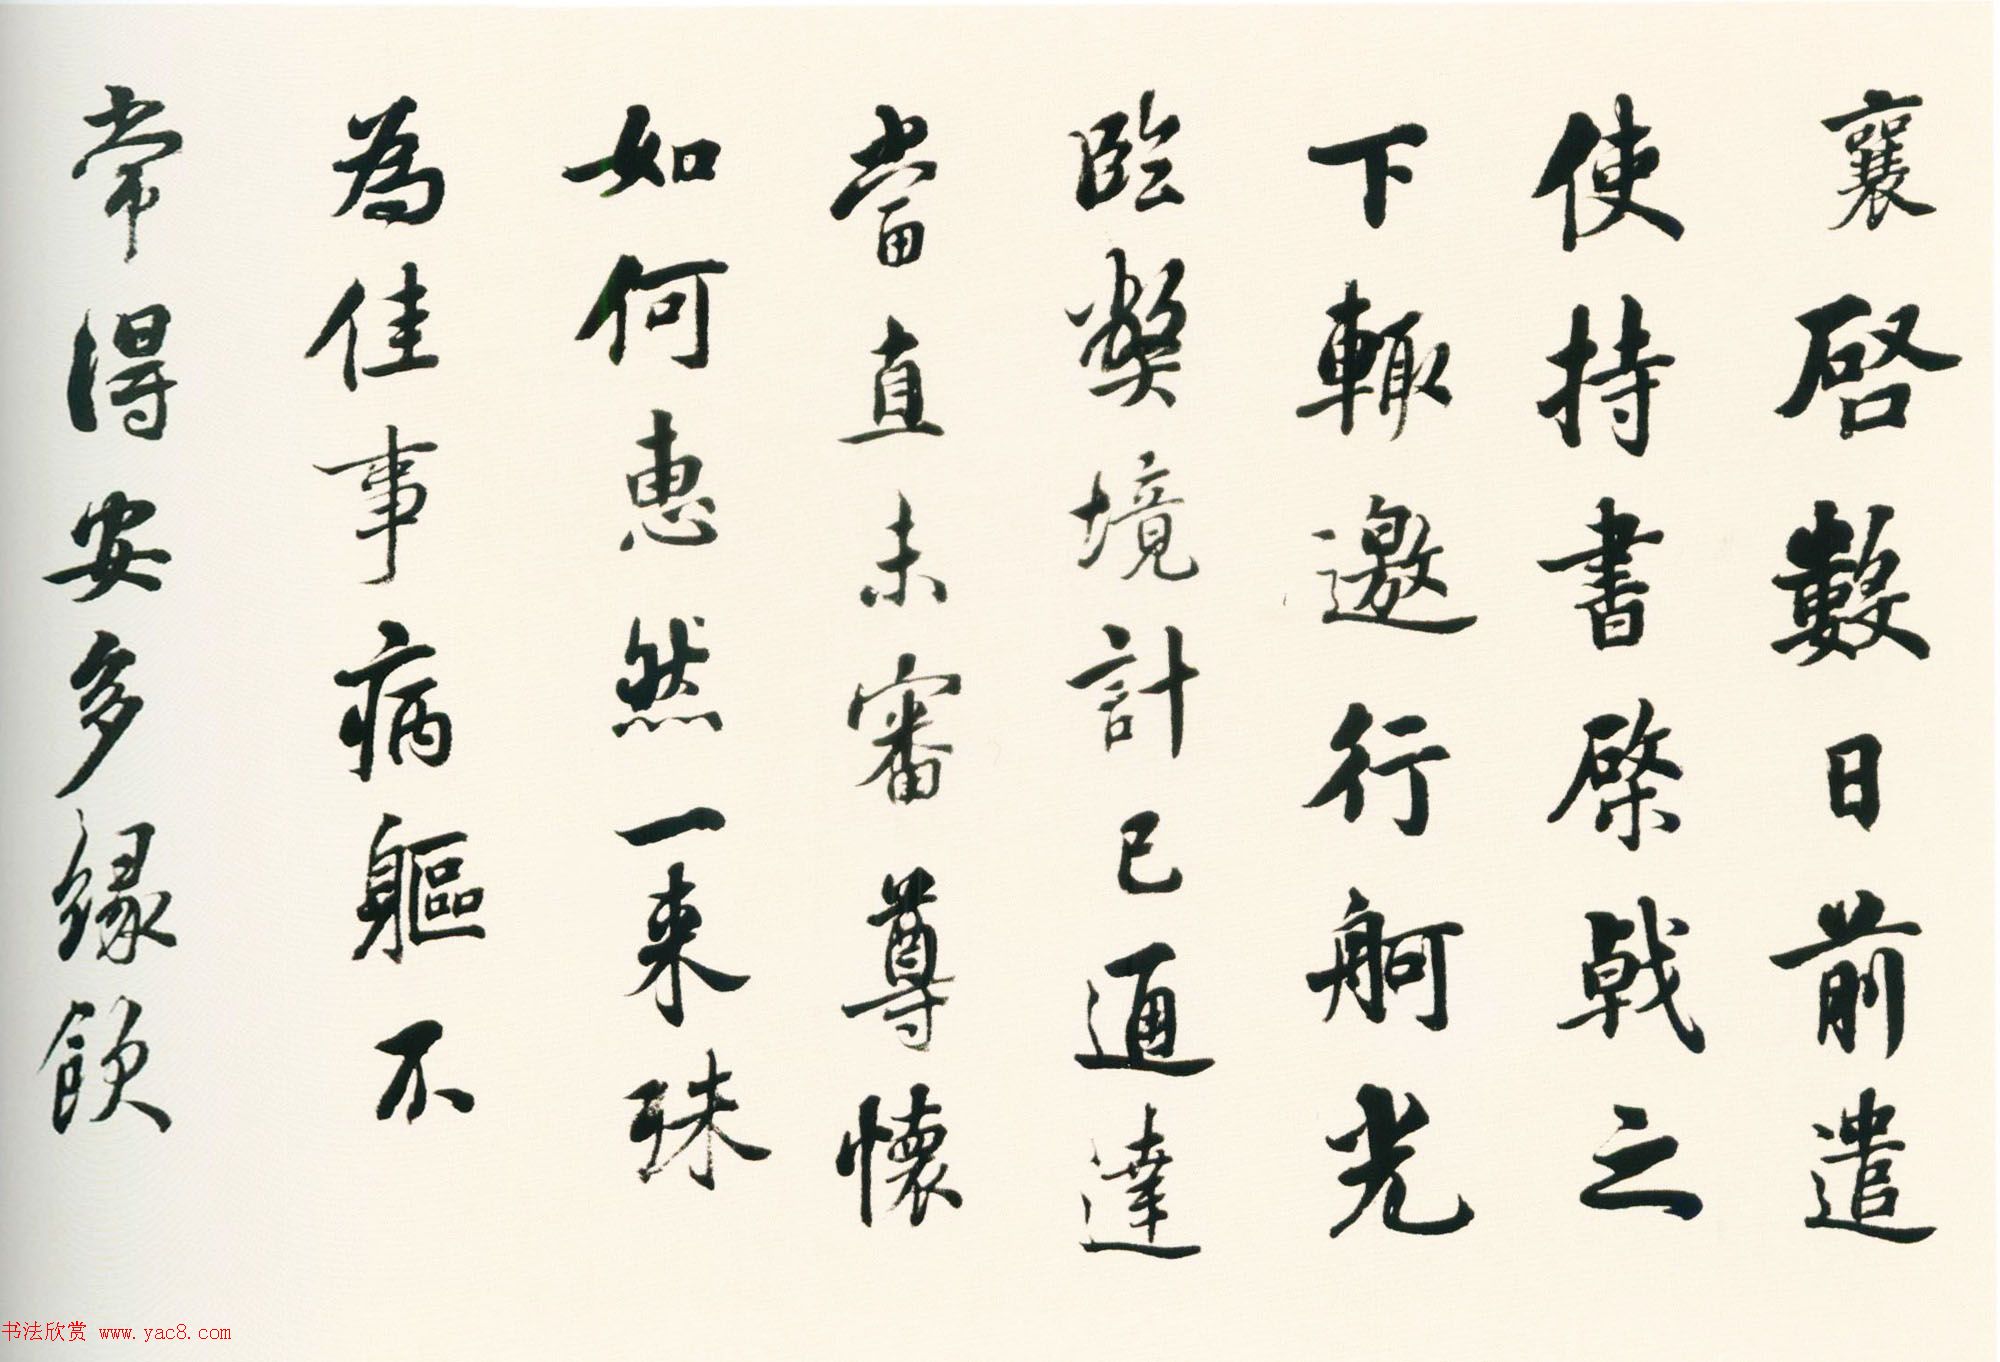 襄啓數日前遣
使持書棨戟之
下輙邀行舸光
臨獘境計已通達
當直未審尊懷
如何惠然一來殊
為佳事病軀不
常得安多緣飲
书法欣赏 www.yac8.com